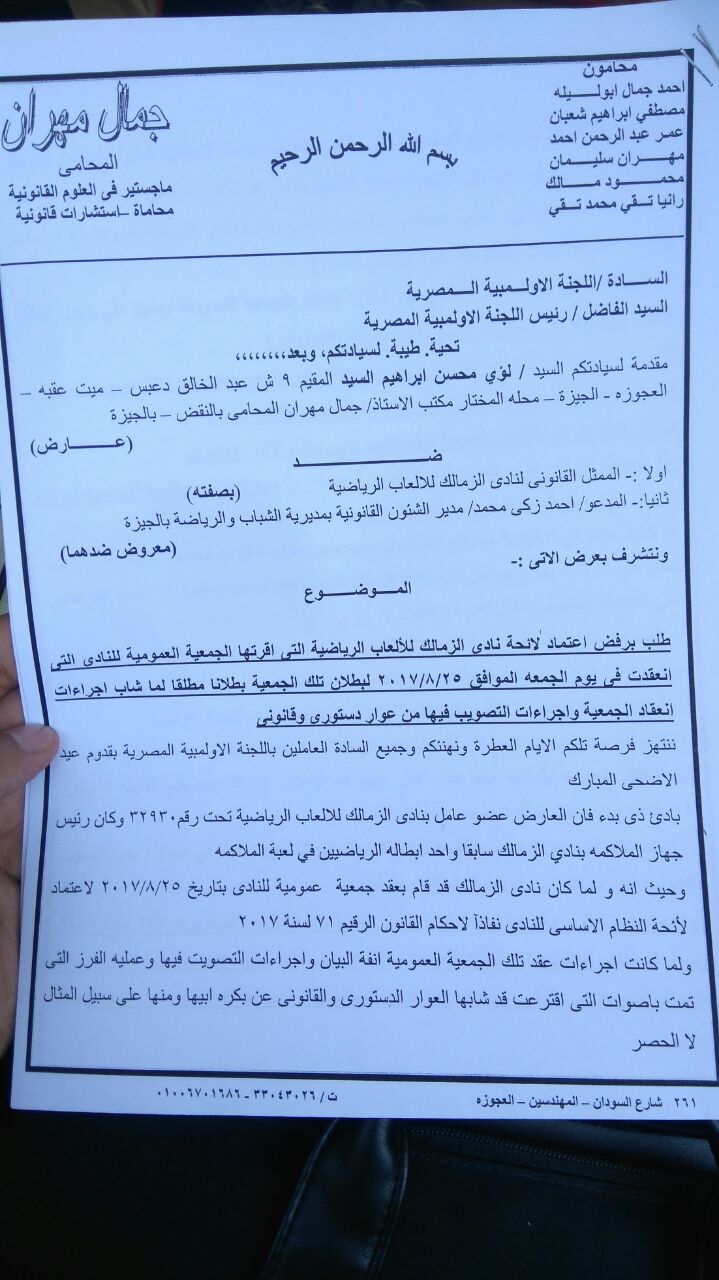 محامون
احمد جمال ابولـــــيله
مصطفي ابراهيم شعبان
عمر عبد الرحمن احمد
مهـــــران سليـــمان
محمـــــود مـــالك
رانيا تـــقي محمد تــقي
بسم الله الرحمن الرحيم
جمال مهران
المحامى
ماجستير فى العلوم القانونية
محاماة –استشارات قانونية
الســـــادة /اللجنة الاولـــمبية الـــمصرية
السيد الفاضل / رئيس اللجنة الاولمبية المصرية
تحية. طيبة. لسيادتكم، وبعد،،،،،،،،
مقدمة لسيادتكم السيد / لؤي محسن ابراهيم السيد المقيم ٩ ش عبد الخالق دعبس – ميت عقبه –
العجوزه - الجيزة – محله المختار مكتب الاستاذ/ جمال مهران المحامى بالنقض – بالجيزة
(عـــــــارض)
ضــــــــــــــــــد
اولا :- الممثل القانونى لنادى الزمالك للالعاب الرياضية (بصفته)
ثانيا:- المدعو/ احمد زكى محمد/ مدير الشئون القانونية بمديرية الشباب والرياضة بالجيزة
(معروض ضدهما)
ونتشرف بعرض الاتى :-
المـــوضـــوع
طلب برفض اعتماد لائحة نادى الزمالك للألعاب الرياضية التى اقرتها الجمعية العمومية للنادى التى
انعقدت فى يوم الجمعه الموافق ٢٠١٧/٨/٢٥ لبطلان تلك الجمعية بطلانا مطلقا لما شاب اجراءات
انعقاد الجمعية واجراءات التصويب فيها من عوار دستورى وقانونى
ننتهز فرصة تلكم الايام العطرة ونهنئكم وجميع السادة العاملين باللجنة الاولمبية المصرية بقدوم عيد
الاضحى المبارك
بادئ ذى بدء فان العارض عضو عامل بنادى الزمالك للالعاب الرياضية تحت رقم ٣٢٩٣٠ وكان رئيس
جهاز الملاكمه بنادي الزمالك سابقا واحد ابطاله الرياضيين في لعبة الملاكمه
وحيث انه و لما كان نادى الزمالك قد قام بعقد جمعية عمومية للنادى بتاريخ ٢٠١٧/٨/٢٥ لاعتماد
لأئحة النظام الاساسى للنادى نفاذاً لاحكام القانون الرقيم ٧١ لسنة ٢٠١٧
ولما كانت اجراءات عقد تلك الجمعية العمومية انفة البيان واجراءات التصويت فيها وعمليه الفرز التى
تمت باصوات التى اقترعت قد شابها العوار الدستورى والقانونى عن بكره ابيها ومنها على سبيل المثال
لا الحصر
٢٦١ شارع السودان – المهندسين – العجوزه ت / ٣٣٠٤٣٠٢٦ - ٠١٠٠٦٧٠١٦٨٦